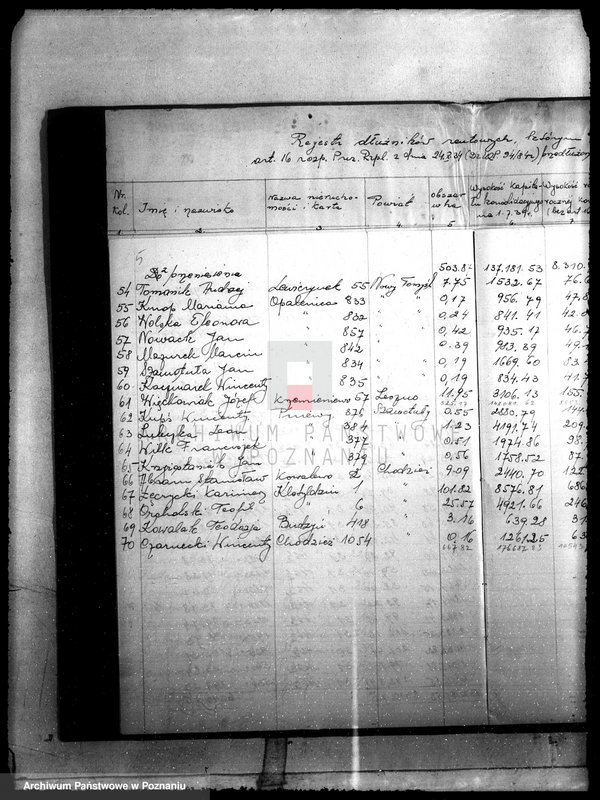 Rejestr dłużników rentowych, którym
art. 16 rozp. Prez. Rzpl. z dnia 24.X.34 (Dz.U.R.P. 94/34r)
Nr. kol. Imię i nazwisko Nazwa nierucho-mości i karta Powiat obszar w ha Wysokość kapita-
na 1.7.39r.
1. 2. 3. 4. 5. 6. 7.
5
Z przeniesienia 503.82 137.181.53 8.310.
54 Tomanik Andrzej 55 Nowy Tomyśl 7.75 1532.67 76.6
55 Knop Marianna Opalenica 833 " 0,17 956.79 47.8
56 Wolska Eleonora " 832 " 0,24 841.41 42.
57 Nowack Jan " 857 " 0,42 935.17 46.
58 Mazurek Marcin " 842 " 0.39 913.89
59 Szamotuła Jan " 834 " 0,19 1669.60 83.
60 Kaczmarek Wincenty " 835 " 0,19 834.43 41.7
61 Więckowiak Józef Krzemieniewo 67 Leszno 11.95 3106.13 155.
62 Kups Wincenty Pniewy 376 Szamotuły 0.55 2880.79 144.
63 Leon " 384 " 1.23 4191.74 209.
64 Wilk Franciszek " 377 " 0.51 1974.86 98.
65 Jan " 379 " 0,56 1758.52 87.
66 Stanisław Kowalewo 2 Chodzież 9.09 2440.70 122
67 Kazimierz Klotyldzin 1 " 101.82 8576.81
68 Teofil " 6 " 25.57 4921.66 246
69 Kowalak Teodozja Budzyń 418 " 3.16 639.28 31.
70 Czarnecki Wincenty Chodzież 1054 " 0.16 1261.25 63
ARCHIWUM PAŃSTWOWE
W POZNANIU
Archiwum Państwowe w Poznaniu